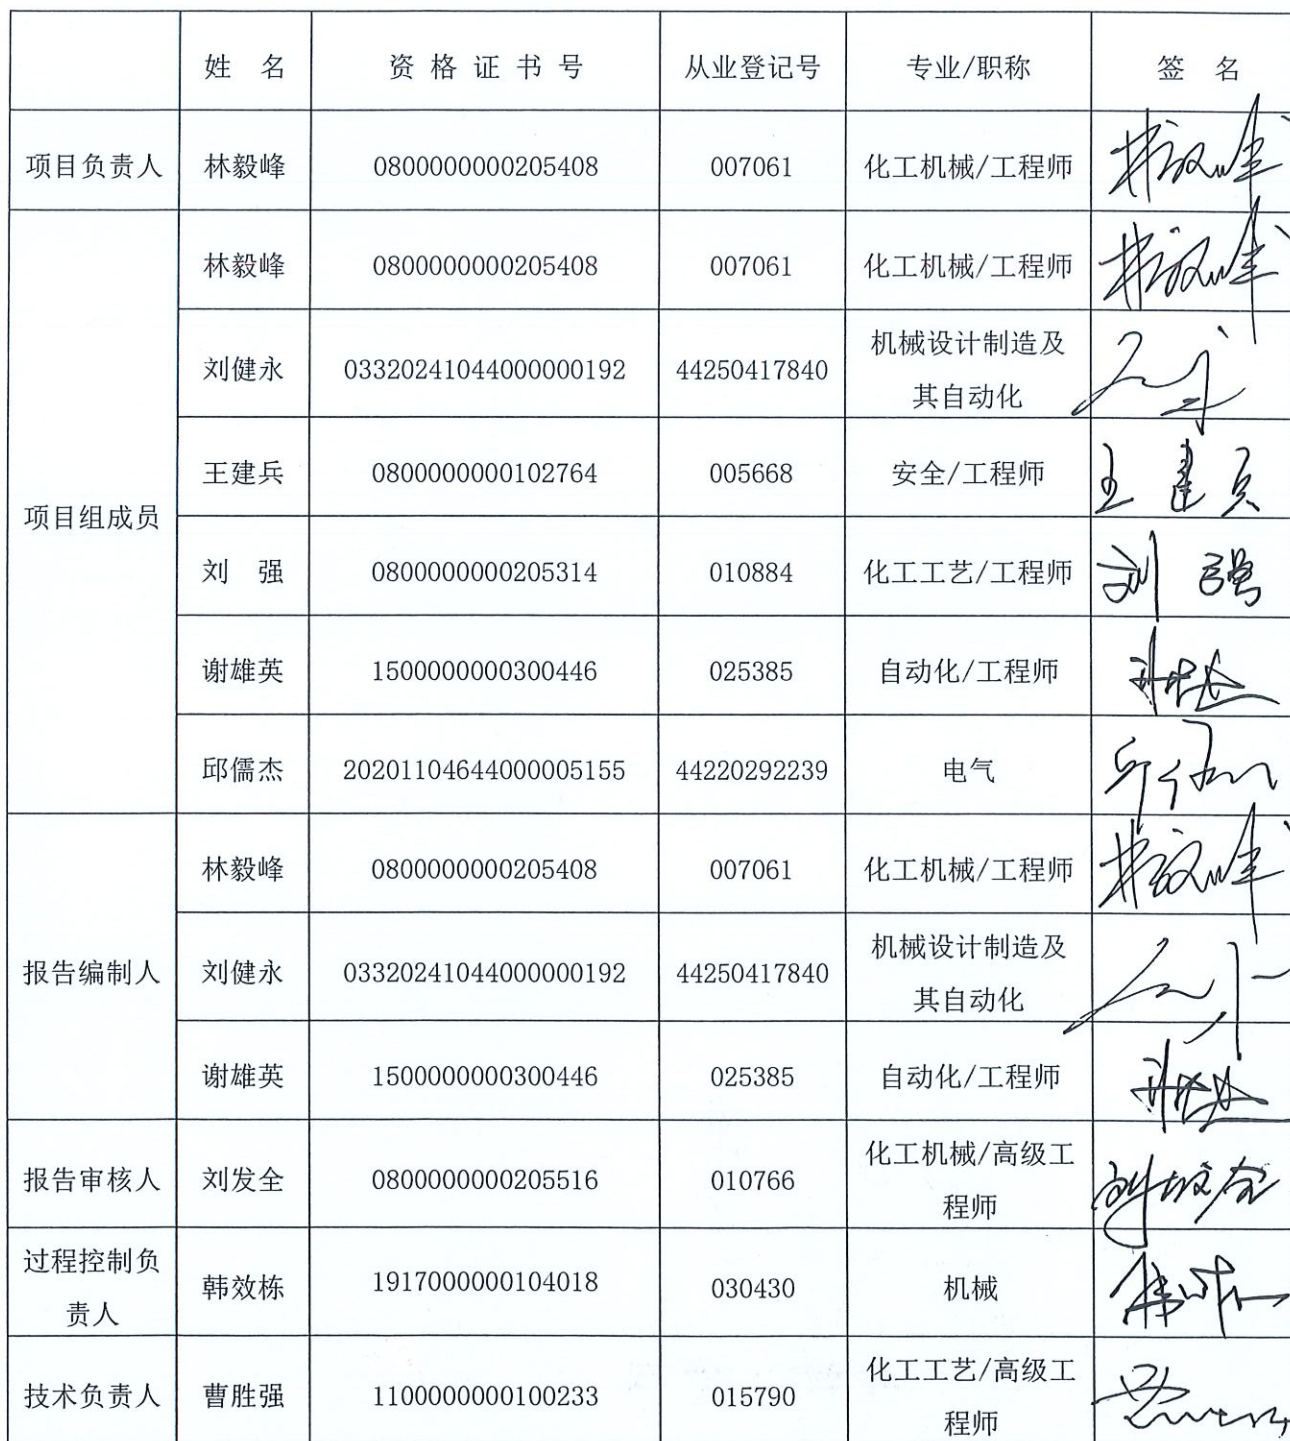 姓 名 资 格 证 书 号 从业登记号 专业/职称 签 名
项目负责人 林毅峰 0800000000205408 007061 化工机械/工程师 林毅峰
项目组成员
林毅峰 0800000000205408 007061 化工机械/工程师 林毅峰
刘健永 03320241044000000192 44250417840 机械设计制造及
其自动化
王建兵 0800000000102764 005668 安全/工程师 王建兵
刘 强 0800000000205314 010884 化工工艺/工程师 刘 强
谢雄英 1500000000300446 025385 自动化/工程师
邱儒杰 20201104644000005155 44220292239 电气
报告编制人
林毅峰 0800000000205408 007061 化工机械/工程师 林毅峰
刘健永 03320241044000000192 44250417840 机械设计制造及
其自动化
谢雄英 1500000000300446 025385 自动化/工程师
报告审核人 刘发全 0800000000205516 010766 化工机械/高级工
程师 刘发全
过程控制负
责人 韩效栋 1917000000104018 030430 机械
技术负责人 曹胜强 1100000000100233 015790 化工工艺/高级工
程师